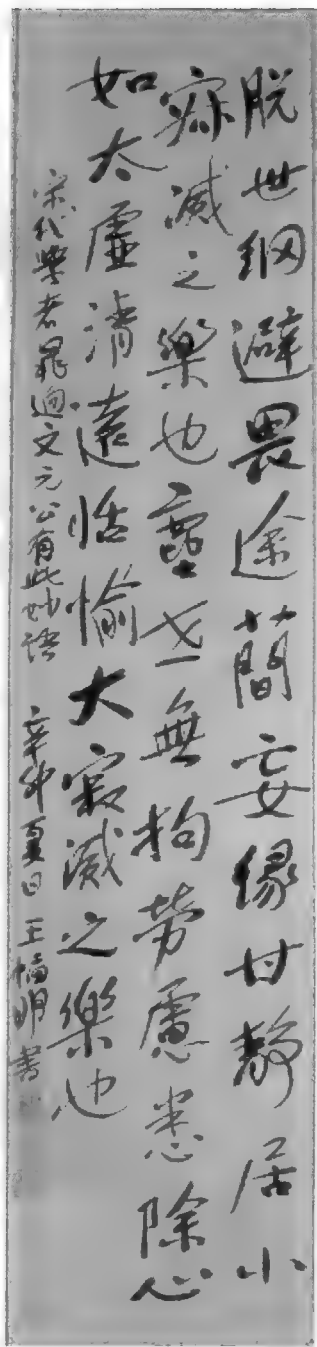 脱世網避畏途簡妄緣甘靜居小
寂滅之樂也靈 無拘勞慮悉除心
如太虛清遠恬愉大寂滅之樂也
宋代學者晁迥文元公有此妙語 辛卯夏日 王 明書